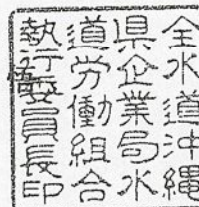 全水道沖縄
県企業局水
道労働組合
執行委員長印